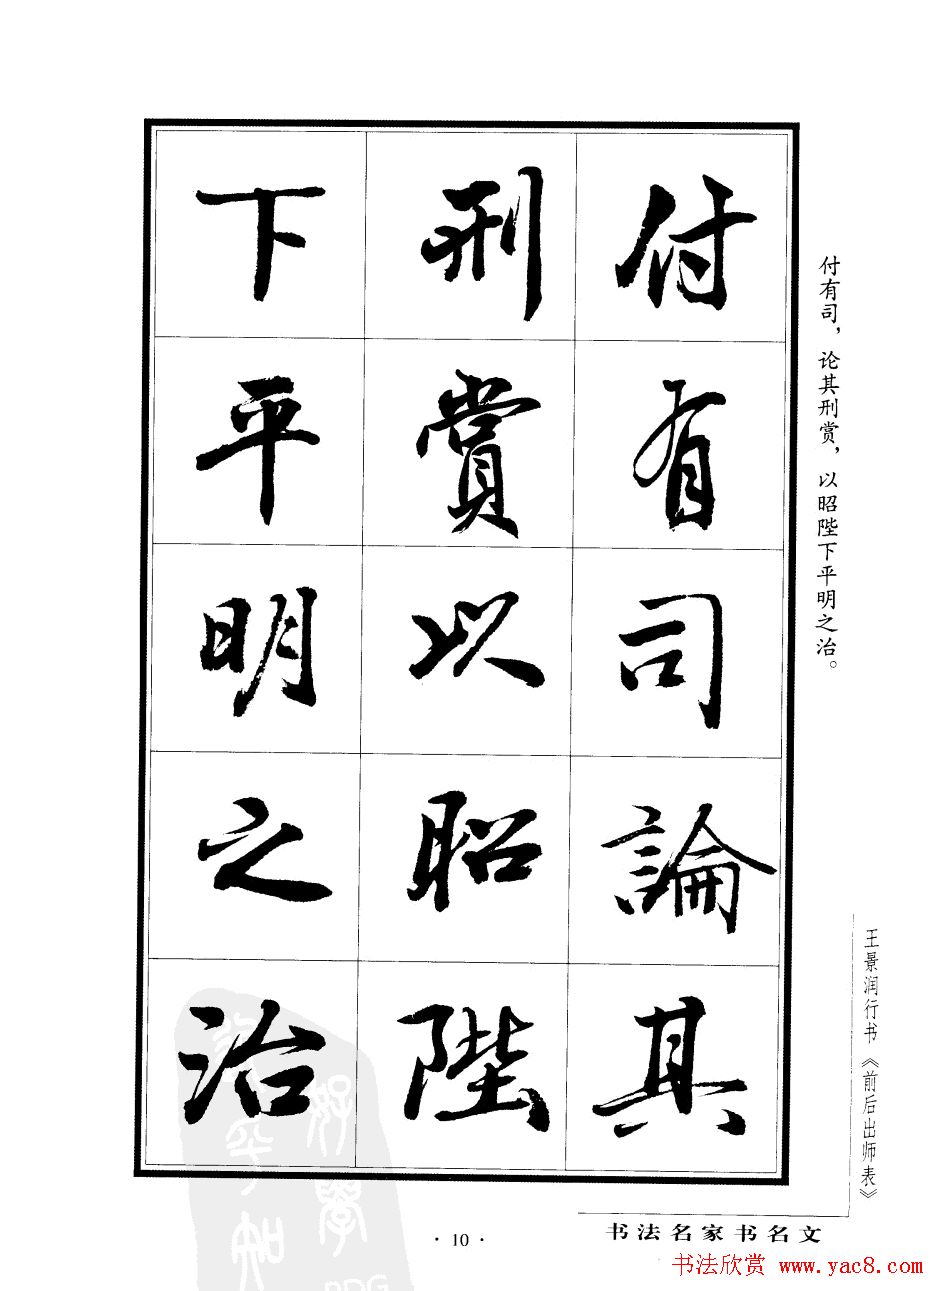 付有司論其
刑賞以昭陛
下平明之治
付有司，论其刑赏，以昭陛下平明之治。
王景润行书《前后出师表》
书法名家书名文
· 10 ·
书法欣赏 www.yac8.com